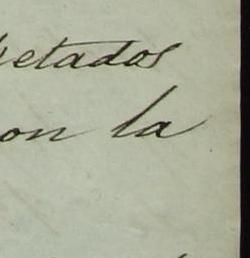 petados
on la